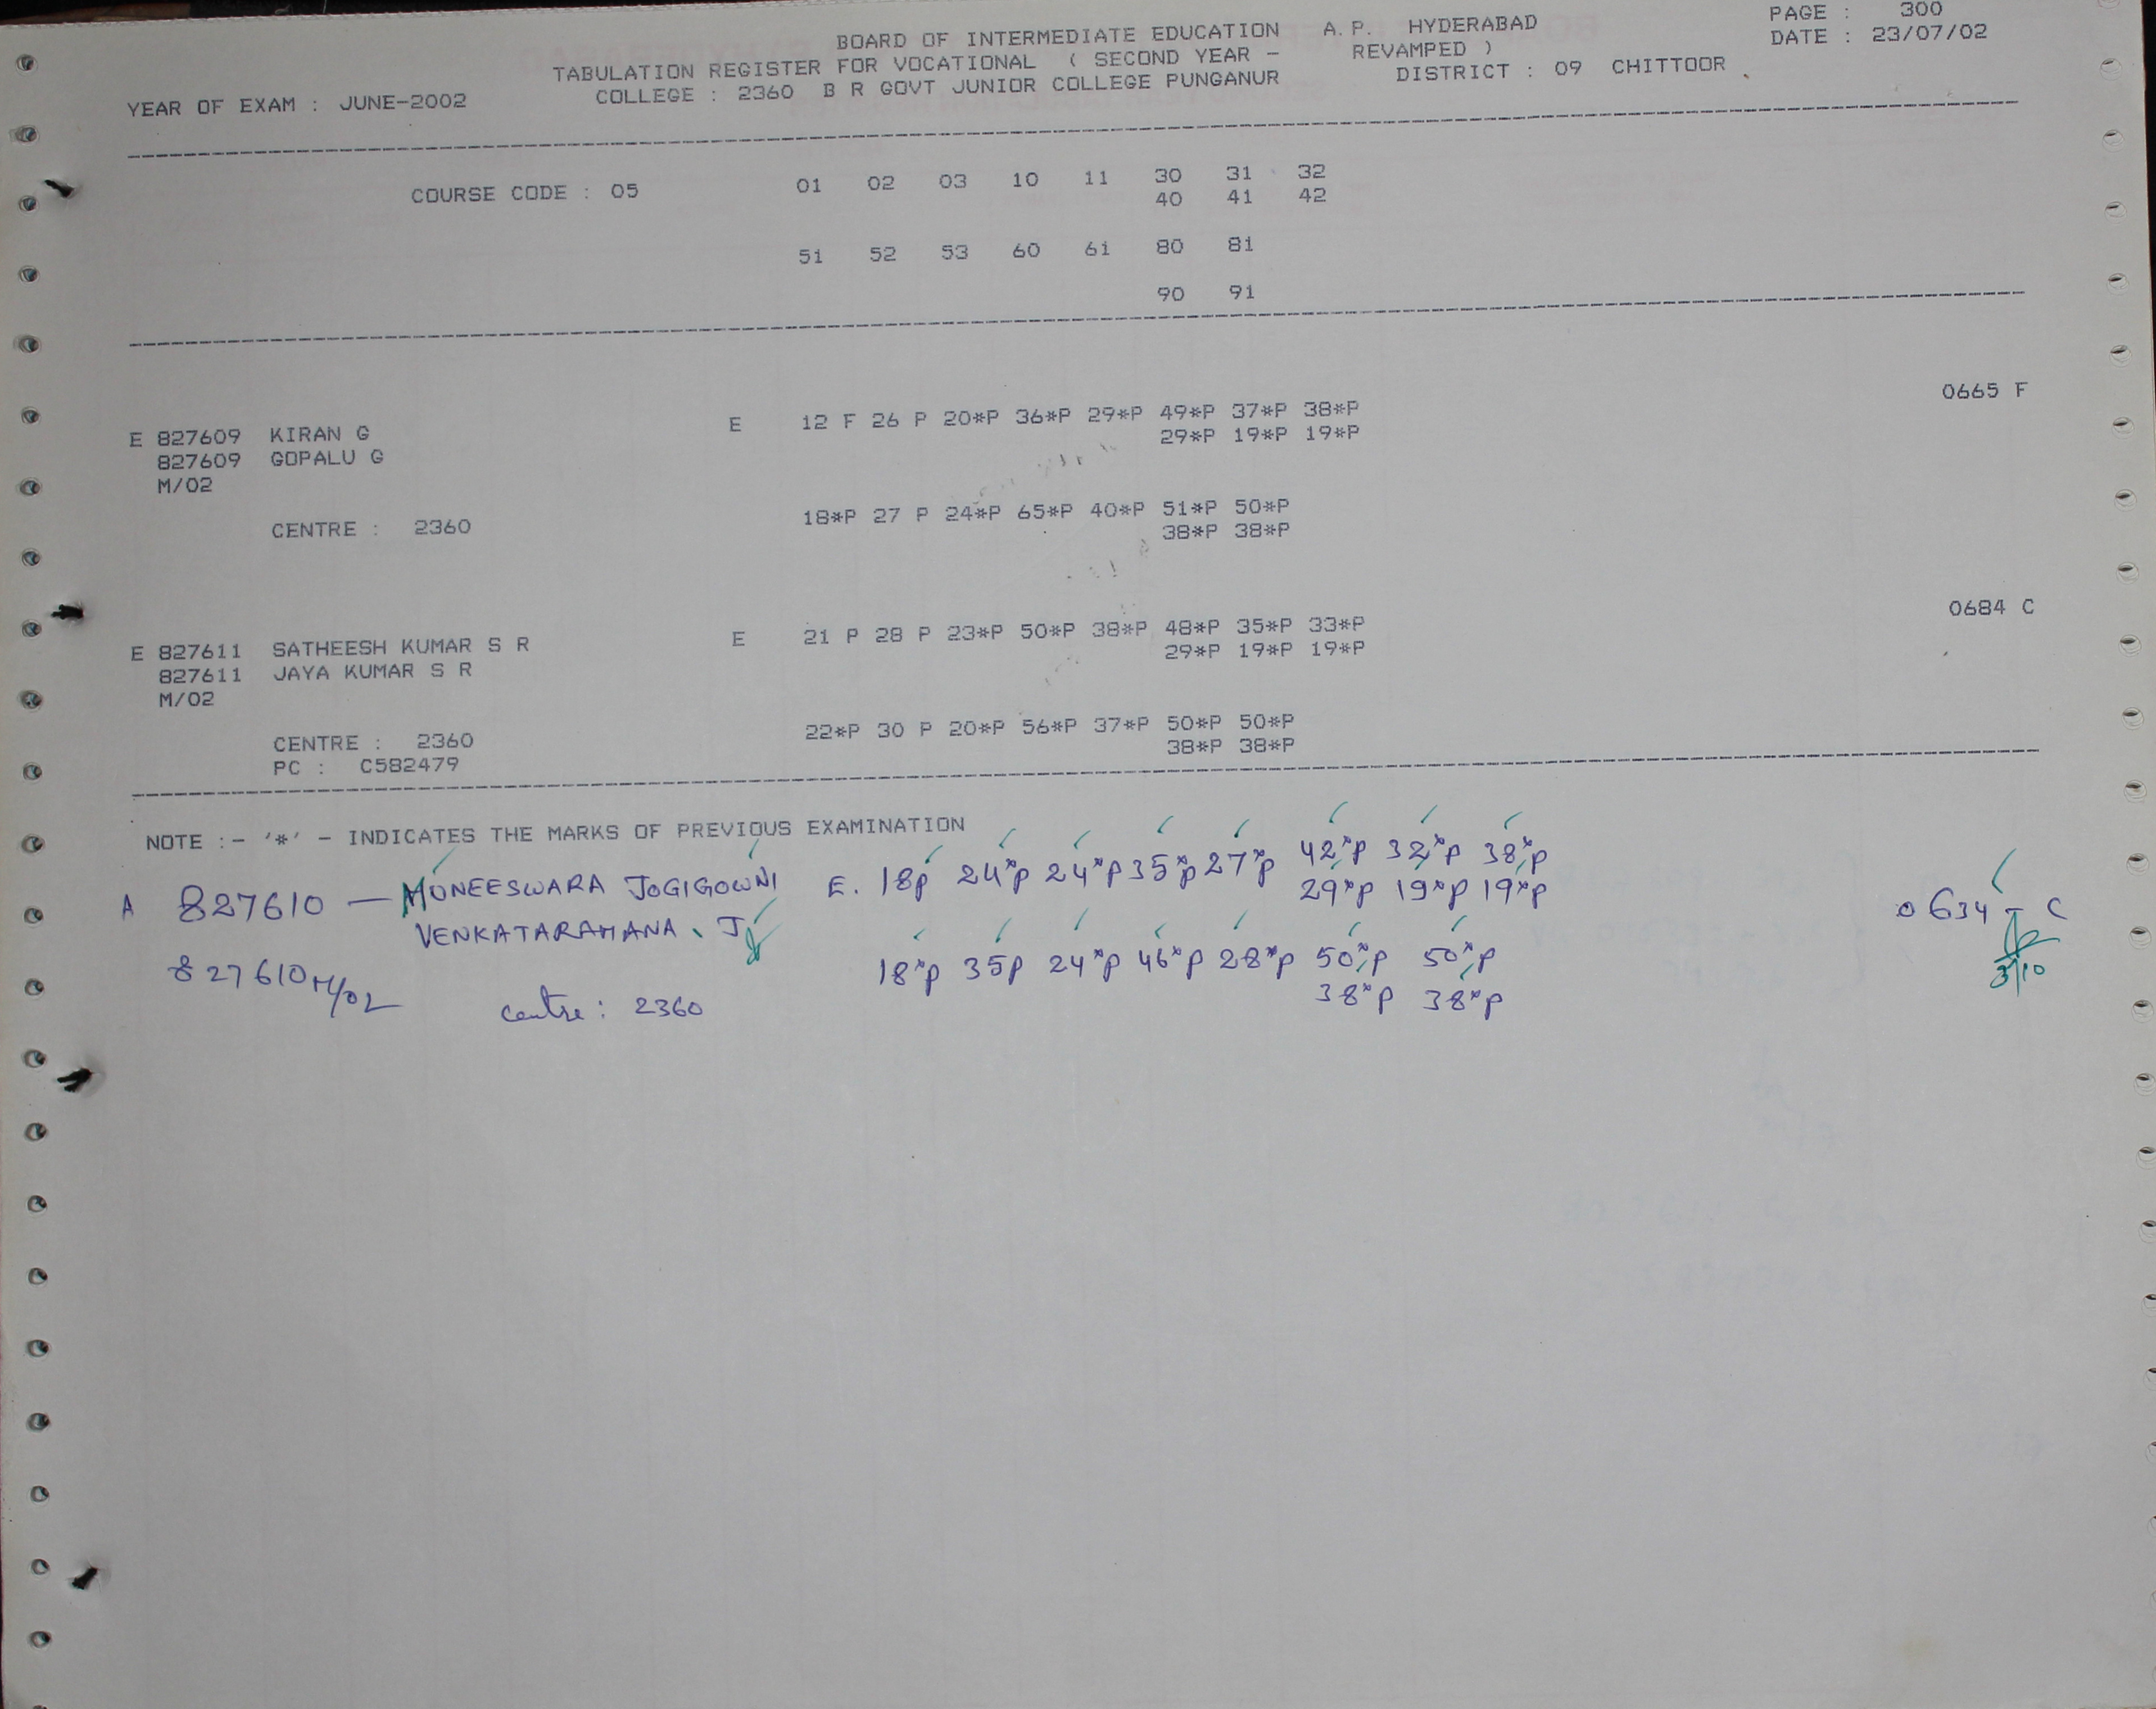 BOARD OF INTERMEDIATE EDUCATION A.P. HYDERABAD PAGE : 300
TABULATION REGISTER FOR VOCATIONAL ( SECOND YEAR - REVAMPED ) DATE : 23/07/02
YEAR OF EXAM : JUNE-2002 COLLEGE : 2360 B R GOVT JUNIOR COLLEGE PUNGANUR DISTRICT : 09 CHITTOOR
COURSE CODE : 05 01 02 03 10 11 30 31 32
40 41 42
51 52 53 60 61 80 81
90 91
E 827609 KIRAN G E 12 F 26 P 20*P 36*P 29*P 49*P 37*P 38*P 0665 F
827609 GOPALU G 29*P 19*P 19*P
M/02
CENTRE : 2360 18*P 27 P 24*P 65*P 40*P 51*P 50*P
38*P 38*P
E 827611 SATHEESH KUMAR S R E 21 P 28 P 23*P 50*P 38*P 48*P 35*P 33*P 0684 C
827611 JAYA KUMAR S R 29*P 19*P 19*P
M/02
CENTRE : 2360 22*P 30 P 20*P 56*P 37*P 50*P 50*P
PC : C582479 38*P 38*P
NOTE :- '*' - INDICATES THE MARKS OF PREVIOUS EXAMINATION
A 827610 — MUNEESWARA JOGIGOWNI E. 18P 24*P 24*P 35*P 27*P 42*P 32*P 38*P 0634 - C
VENKATARAMANA. J 29*P 19*P 19*P
827610 M/02 18*P 35P 24*P 46*P 28*P 50*P 50*P 3/10
centre : 2360 38*P 38*P